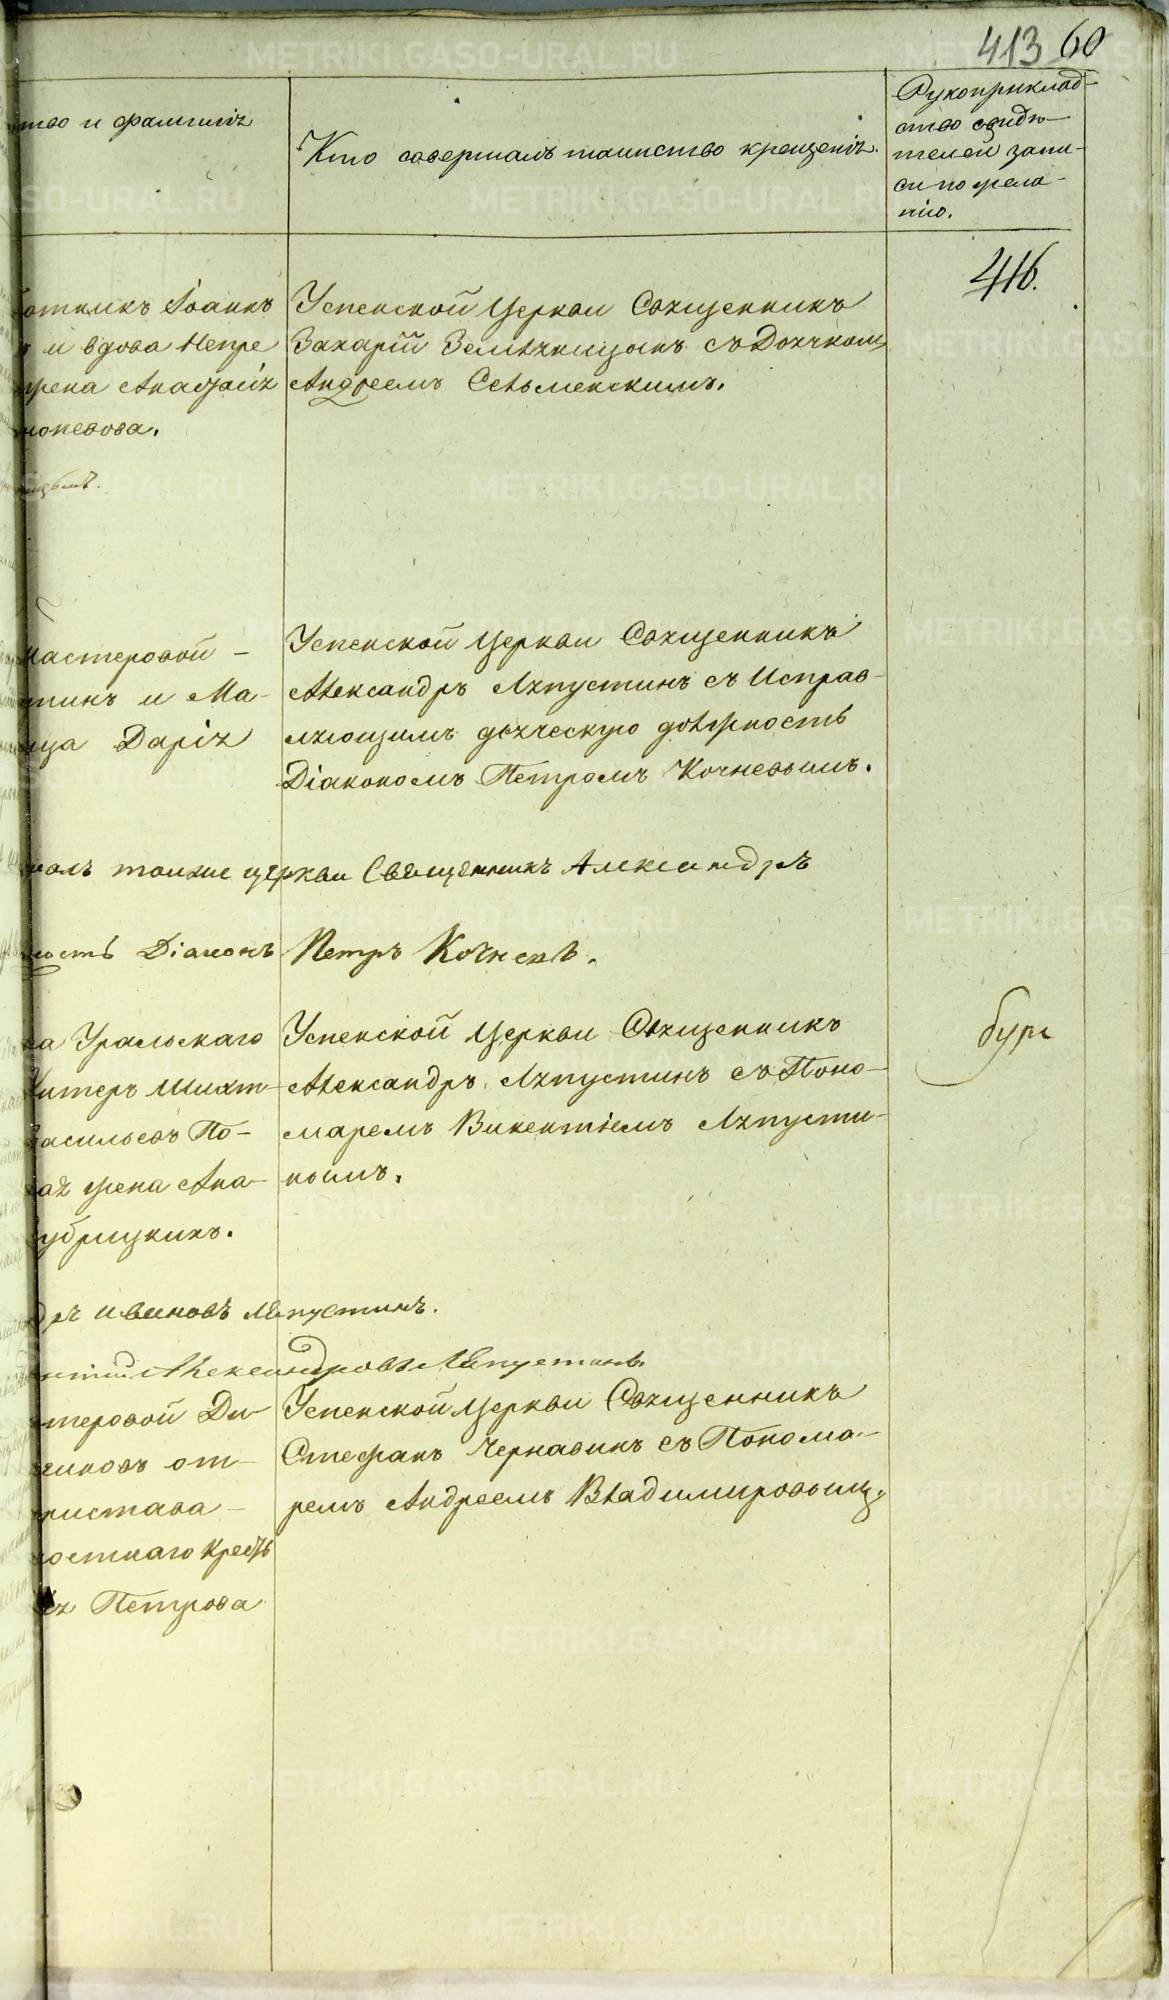 413 60
ство и фамилія
Кто совершалъ таинство крещенія.
Рукоприклад-
ство свидѣ-
телей запи-
си по жела-
нію.
416.
Іоаннъ
и вдова Непре
жена Анастасія
Успенской Церкви Священникъ
Захарій Землянницынъ съ Дьячкомъ
Андреемъ Сельменскимъ.
Мастеровой -
тинъ и Ма-
ица Дарія
Успенской Церкви Священникъ
Александръ Ляпустинъ съ Исправ-
ляющимъ дьяческую должность
Діакономъ Петромъ Кочневымъ.
тоиже церкви Священникъ Александръ
ность Діаконъ Петръ Кочневъ.
ка Уральскаго
Шихт-
Васильевъ По-
жена Ана-
Успенской Церкви Священникъ
Александръ Ляпустинъ съ Поно-
маремъ Викентіемъ Ляпусти-
нымъ.
Ивановъ Ляпустинъ.
Александровъ Ляпустинъ.
теровой Ди-
от-
пристава -
костнаго Крестъ
Петрова
Успенской Церкви Священникъ
Стефанъ Чернавинъ съ Понома-
ремъ Андреемъ Владимировымъ
METRIKI.GASO-URAL.RU